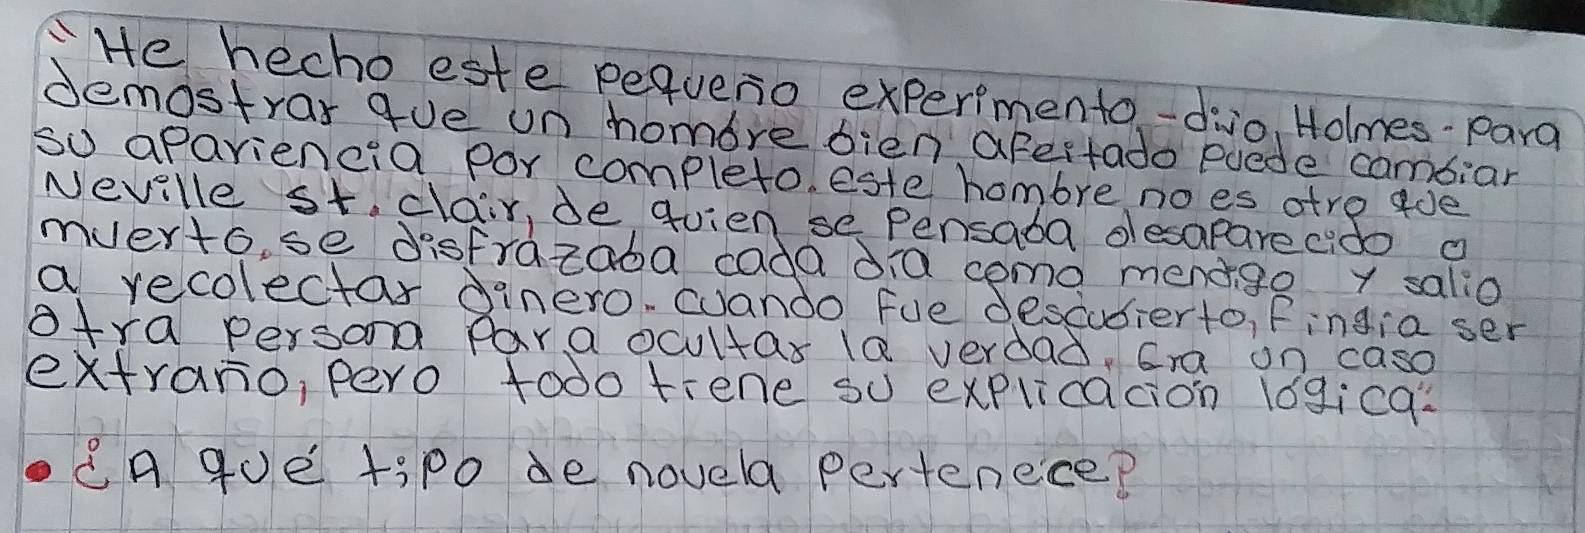 "He hecho este pequeño experimento -dijo, Holmes- para
demostrar que un hombre bien afeitado puede cambiar
su apariencia por completo. este hombre no es otro que
Neville st. clair, de quien se pensaba desaparecido o
muerto. se disfrázaba cada día como mendigo y salio
a recolectar dinero. cuando fue descubierto, Fingia ser
otra persona para ocultar la verdad. Era un caso
extraño, pero todo tiene su explicación lógica".
• ¿A qué tipo de novela pertenece?